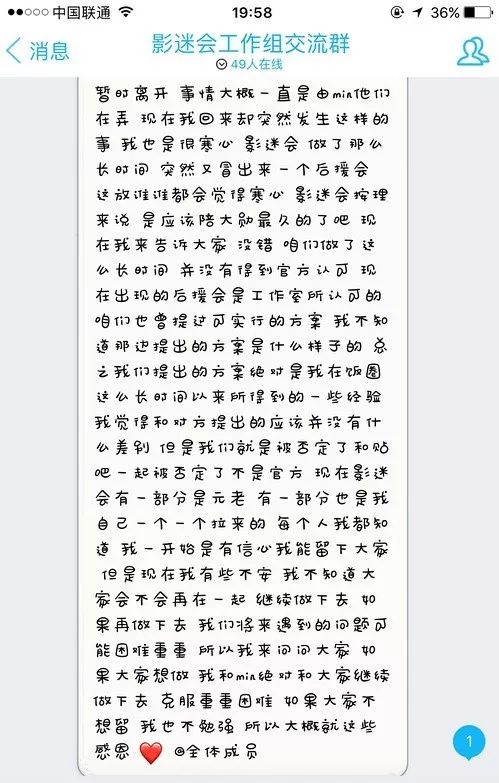 中国联通 19:58 36%
消息 影迷会工作组交流群
49人在线
暂时离开 事情大概一直是由min他们
在弄 现在我回来却突然发生这样的
事 我也是很寒心 影迷会 做了那么
长时间 突然又冒出来一个后援会
这放谁谁都会觉得寒心 影迷会按理
来说 是应该陪大勋最久的了吧 现
在我来告诉大家 没错 咱们做了这
么长时间 并没有得到官方认可 现
在出现的后援会是工作室所认可的
咱们也曾提过可实行的方案 我不知
道那边提出的方案是什么样子的 总
之我们提出的方案绝对是我在饭圈
这么长时间以来所得到的一些经验
我觉得和对方提出的应该并没有什
么差别 但是我们就是被否定了和贴
吧一起被否定了不是官方 现在影迷
会有一部分是元老 有一部分也是我
自己一个一个拉来的 每个人我都知
道 我一开始是有信心我能留下大家
但是现在我有些不安 我不知道大
家会不会再在一起 继续做下去 如
果再做下去 我们将来遇到的问题可
能困难重重 所以我来问问大家 如
果大家想做 我和min绝对和大家继续
做下去 克服重重困难 如果大家不
想留 我也不勉强 所以大概就这些
感恩 ❤️ @全体成员
1